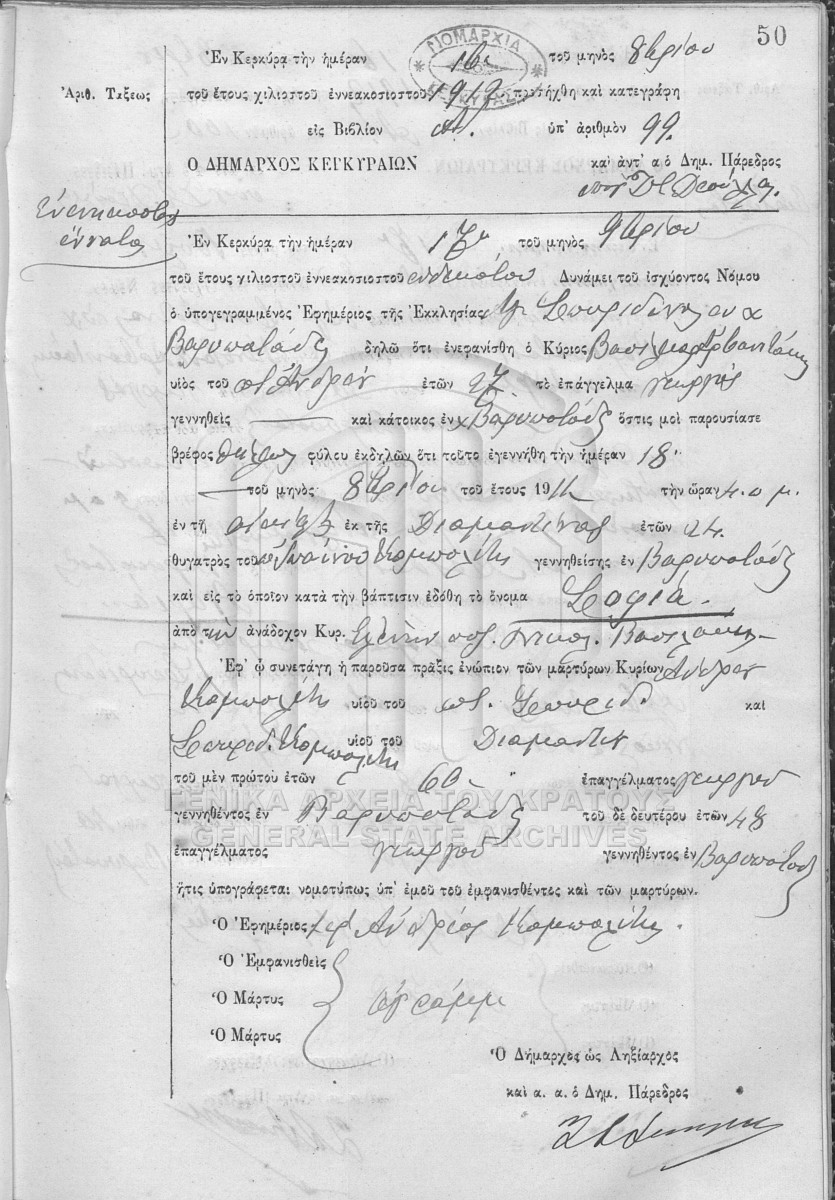 50
ΝΟΜΑΡΧΙΑ
Ἐν Κερκύρᾳ τὴν ἡμέραν 16 τοῦ μηνὸς 8βρίου
Ἀριθ. Τάξεως
τοῦ ἔτους χιλιοστοῦ ἐννεακοσιοστοῦ 1912 προσήχθη καὶ κατεγράφη
εἰς Βιβλίον ὑπ' ἀριθμὸν 99.
Ο ΔΗΜΑΡΧΟΣ ΚΕΡΚΥΡΑΙΩΝ καὶ ἀντ' α.ὁ Δημ. Πάρεδρος
ἔννατος
Ἐν Κερκύρᾳ τὴν ἡμέραν 17 τοῦ μηνὸς 9βρίου
τοῦ ἔτους χιλιοστοῦ ἐννεακοσιοστοῦ ἑνδεκάτου Δυνάμει τοῦ ἰσχύοντος Νόμου
ὁ ὑπογεγραμμένος Ἐφημέριος τῆς Ἐκκλησίας Ἁγ. Σπυρίδωνος
Βαρυπατάδες δηλῶ ὅτι ἐνεφανίσθη ὁ Κύριος
υἱὸς τοῦ π. Ἀνδρέου ἐτῶν 27 τὸ ἐπάγγελμα γεωργὸς
γεννηθεὶς καὶ κάτοικος ἐν Βαρυπατάδες ὅστις μοὶ παρουσίασε
βρέφος θήλεος φύλου ἐκδηλῶν ὅτι τοῦτο ἐγεννήθη τὴν ἡμέραν 18
τοῦ μηνὸς 8βρίου τοῦ ἔτους 1911 τὴν ὥραν 4. π μ.
ἐν τῇ οἰκίᾳ ἐκ τῆς Διαμαντίνας ἐτῶν 24.
θυγατρὸς τοῦ Κομπολίτη γεννηθείσης ἐν Βαρυπατάδες
καὶ εἰς τὸ ὁποῖον κατὰ τὴν βάπτισιν ἐδόθη τὸ ὄνομα Σοφία.
ἀπὸ τὴν ἀνάδοχον Κυρ. Ἑλένην Νικολ.
Ἐφ' ᾧ συνετάγη ἡ παροῦσα πρᾶξις ἐνώπιον τῶν μαρτύρων Κυρίων Ἀνδρέου
Κομπολίτη υἱοῦ τοῦ π. Σπυρίδ. καὶ
Σπυρίδ. Κομπολίτη υἱοῦ τοῦ Διαμαντῆ
τοῦ μὲν πρώτου ἐτῶν 60 ἐπαγγέλματος γεωργοῦ
ΓΕΝΙΚΑ ΑΡΧΕΙΑ ΤΟΥ ΚΡΑΤΟΥΣ
γεννηθέντος ἐν Βαρυπατάδες τοῦ δὲ δευτέρου ἐτῶν 48
GENERAL STATE ARCHIVES
ἐπαγγέλματος γεωργοῦ γεννηθέντος ἐν Βαρυπατάδες
ἥτις ὑπογράφεται νομοτύπως ὑπ' ἐμοῦ τοῦ ἐμφανισθέντος καὶ τῶν μαρτύρων.
Ὁ Ἐφημέριος Ἀνδρέας Κομπολίτης.
Ὁ Ἐμφανισθεὶς
Ὁ Μάρτυς ἀγράμμ
Ὁ Μάρτυς
Ὁ Δήμαρχος ὡς Ληξίαρχος
καὶ α. α. ὁ Δημ. Πάρεδρος